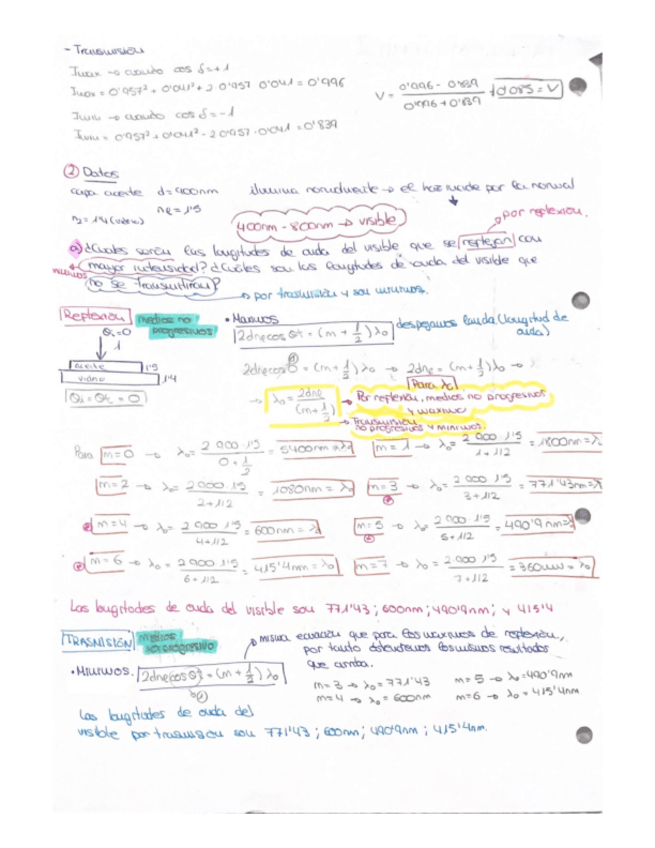 - Transmisión
Imax → cuando cos δ=+1
Imax = 0'957² + 0'041² + 2·0'957·0'041 = 0'996
V = 0'996 - 0'839 / 0'996 + 0'839 = 0'085 = V
Imin → cuando cos δ=-1
Imin = 0'957² + 0'041² - 2·0'957·0'041 = 0'839
② Datos
capa aceite d=900nm ilumina normalmente → el haz incide por la normal
ne = 1'5
n2 = 1'4 (vidrio)
400nm - 800nm → visible
por reflexión.
a) ¿Cuáles serán las longitudes de onda del visible que se reflejan con
mayor intensidad? ¿Cuáles son las longitudes de onda del visible que
no se transmitirán?
→ por transmisión y son mínimos.
Reflexión medios no progresivos
θi=0
1
aceite 1'5
vidrio 1'4
θi = θt = 0
• Máximos
2dne cos θt = (m + 1/2) λ0 despejamos landa (longitud de onda)
2dne cos 0 = (m + 1/2) λ0 → 2dne = (m + 1/2) λ0 →
→ λ0 = 2dne / (m + 1/2)
Para λ0
→ Por reflexión, medios no progresivos y máximo
→ Transmisión no progresivos y mínimos.
Para m=0 → λ0 = 2·900·1'5 / 0 + 1/2 = 5400nm = λ0
m=1 → λ0 = 2·900·1'5 / 1+1/2 = 1800nm = λ
m=2 → λ0 = 2·900·1'5 / 2+1/2 = 1080nm = λ
m=3 → λ0 = 2·900·1'5 / 3+1/2 = 771'43nm = λ
m=4 → λ0 = 2·900·1'5 / 4+1/2 = 600nm = λ
m=5 → λ0 = 2·900·1'5 / 5+1/2 = 490'9nm = λ
m=6 → λ0 = 2·900·1'5 / 6+1/2 = 415'4nm = λ0
m=7 → λ0 = 2·900·1'5 / 7+1/2 = 360nm = λ0
Las longitudes de onda del visible son 771'43 ; 600nm ; 490'9nm ; y 415'4
TRASMISIÓN medios no progresivo
→ misma ecuación que para los máximos de reflexión,
por tanto obtendremos los mismos resultados
que arriba.
• Mínimos. 2dne cos θt = (m + 1/2) λ0
m=3 → λ0 = 771'43
m=5 → λ0 = 490'9nm
m=4 → λ0 = 600nm
m=6 → λ0 = 415'4nm
Las longitudes de onda del
visible por trasmisión son 771'43 ; 600nm ; 490'9nm ; 415'4nm.